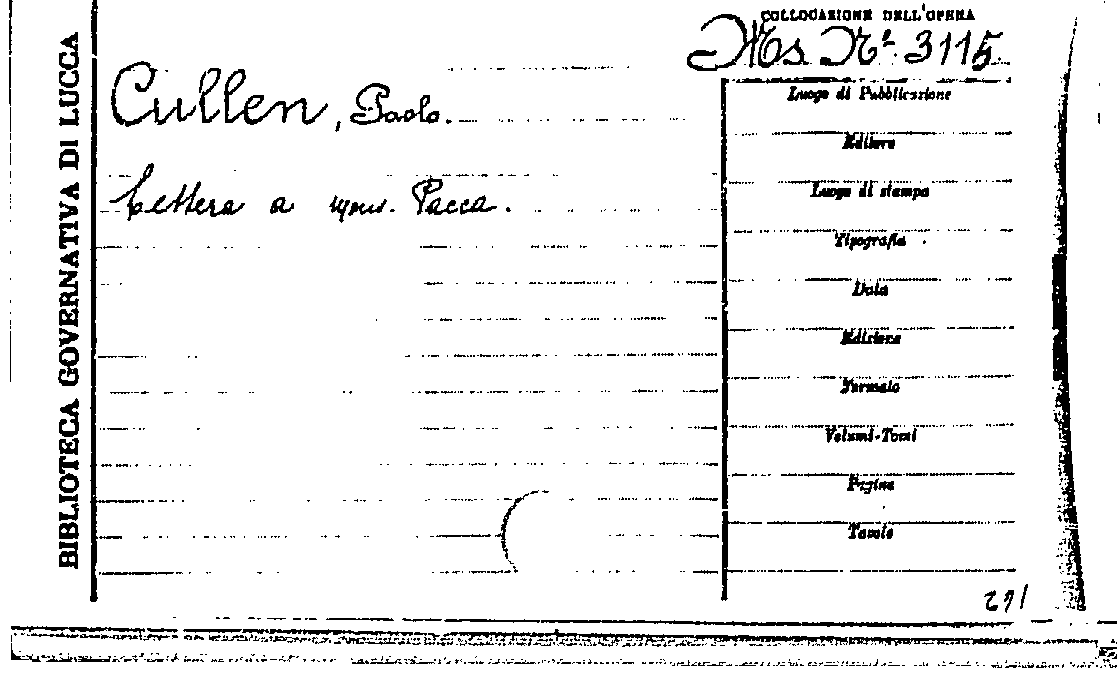 COLLOCAZIONE DELL'OPERA
Ms. N.º 3115
BIBLIOTECA GOVERNATIVA DI LUCCA
Cullen, Paolo.
Lettera a mons. Pacca.
Luogo di Pubblicazione
Editore
Luogo di stampa
Tipografia
Data
Edizione
Formato
Volumi-Tomi
Pagine
Tavole